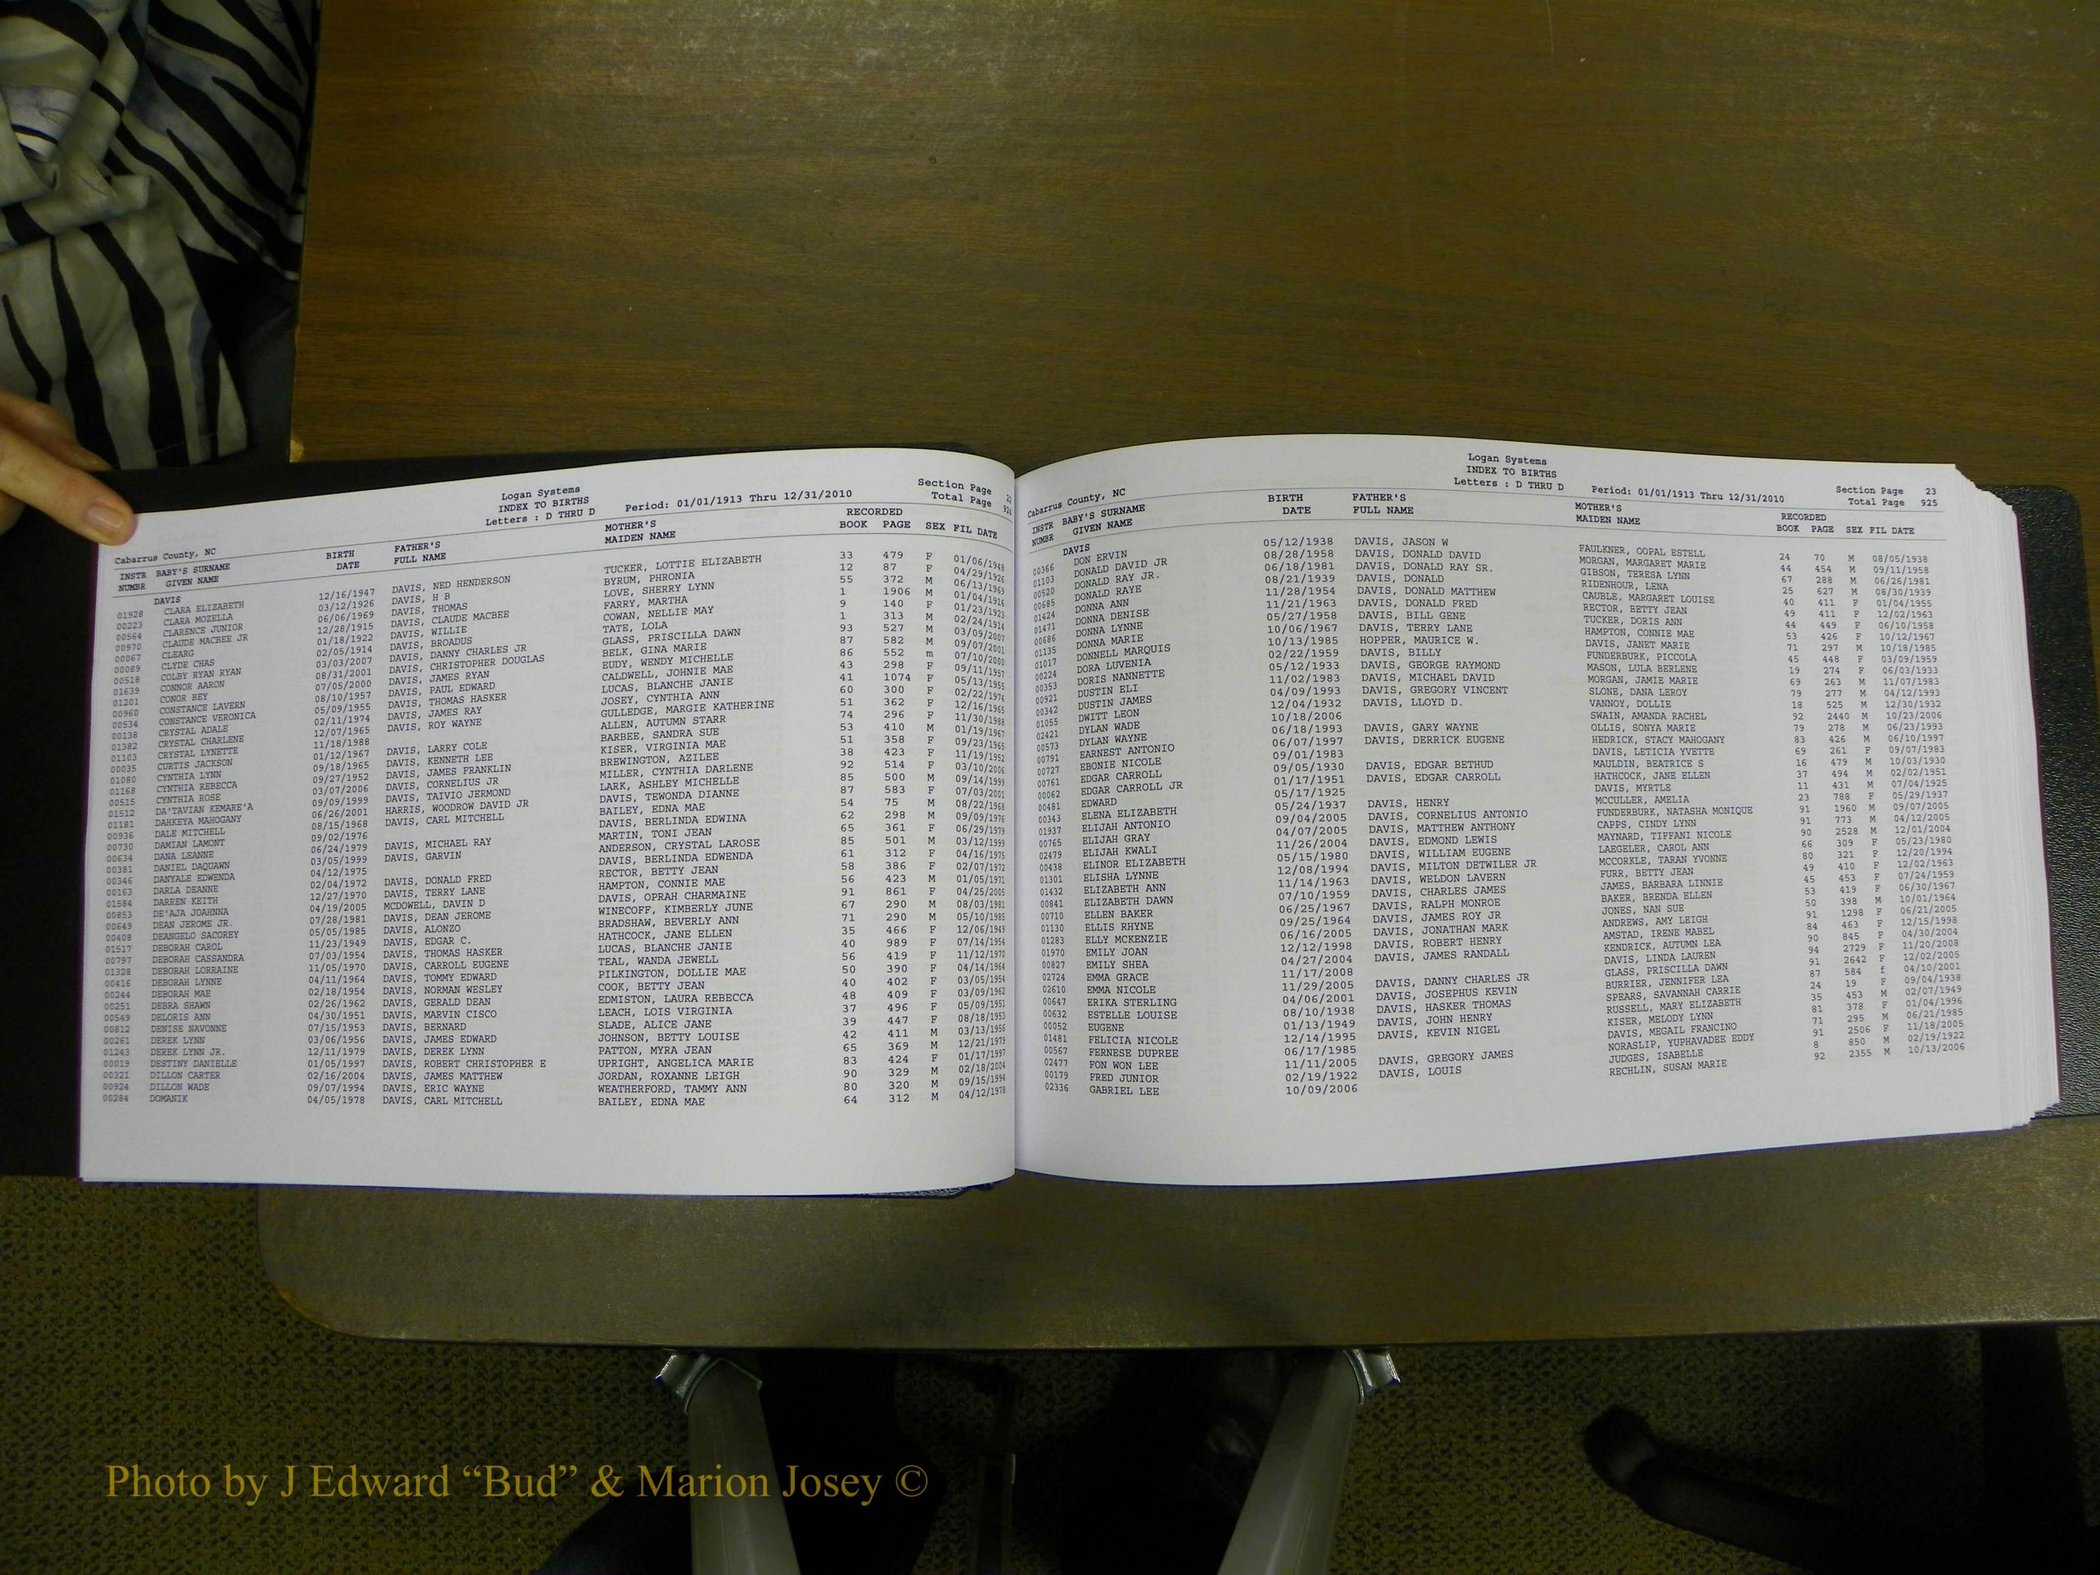 Logan Systems
INDEX TO BIRTHS
Letters : D THRU D
Period: 01/01/1913 Thru 12/31/2010
Section Page 22
Total Page
Cabarrus County, NC
INSTR NUMBR BABY'S SURNAME GIVEN NAME BIRTH DATE FATHER'S FULL NAME MOTHER'S MAIDEN NAME RECORDED BOOK PAGE SEX FIL DATE
DAVIS
01928 CLARA ELIZABETH 12/16/1947 DAVIS, NED HENDERSON TUCKER, LOTTIE ELIZABETH 33 479 F 01/06/1948
00223 CLARA MOZELLA 03/12/1926 DAVIS, H B BYRUM, PHRONIA 12 87 F 04/29/1926
00564 CLARENCE JUNIOR 06/06/1969 DAVIS, THOMAS LOVE, SHERRY LYNN 55 372 M 06/13/1969
00970 CLAUDE MACBEE JR 12/28/1915 DAVIS, CLAUDE MACBEE FARRY, MARTHA 1 1906 M 01/04/1916
00067 CLEARG 01/18/1922 DAVIS, WILLIE COWAN, NELLIE MAY 9 140 F 01/23/1923
00089 CLYDE CHAS 02/05/1914 DAVIS, BROADUS TATE, LOLA 1 313 M 02/24/1914
00518 COLBY RYAN RYAN 03/03/2007 DAVIS, DANNY CHARLES JR GLASS, PRISCILLA DAWN 93 527 M 03/09/2007
01639 CONNOR AARON 08/31/2001 DAVIS, CHRISTOPHER DOUGLAS BELK, GINA MARIE 87 582 M 09/07/2001
01201 CONOR BEY 07/05/2000 DAVIS, JAMES RYAN EUDY, WENDY MICHELLE 86 552 m 07/10/2000
00960 CONSTANCE LAVERN 08/10/1957 DAVIS, PAUL EDWARD CALDWELL, JOHNIE MAE 43 298 F 09/11/1957
00534 CONSTANCE VERONICA 05/09/1955 DAVIS, THOMAS HASKER LUCAS, BLANCHE JANIE 41 1074 F 05/13/1955
00138 CRYSTAL ADALE 02/11/1974 DAVIS, JAMES RAY JOSEY, CYNTHIA ANN 60 300 F 02/22/1974
01382 CRYSTAL CHARLENE 12/07/1965 DAVIS, ROY WAYNE GULLEDGE, MARGIE KATHERINE 51 362 F 12/16/1965
01103 CRYSTAL LYNETTE 11/18/1988 ALLEN, AUTUMN STARR 74 296 F 11/30/1988
00035 CURTIS JACKSON 01/12/1967 DAVIS, LARRY COLE BARBEE, SANDRA SUE 53 410 M 01/19/1967
01080 CYNTHIA LYNN 09/18/1965 DAVIS, KENNETH LEE KISER, VIRGINIA MAE 51 358 F 09/23/1965
01168 CYNTHIA REBECCA 09/27/1952 DAVIS, JAMES FRANKLIN BREWINGTON, AZILEE 38 423 F 11/19/1952
00515 CYNTHIA ROSE 03/07/2006 DAVIS, CORNELIUS JR MILLER, CYNTHIA DARLENE 92 514 F 03/10/2006
01512 DA'TAVIAN KEMARE'A 09/09/1999 DAVIS, TAIVIO JERMOND LARK, ASHLEY MICHELLE 85 500 M 09/14/1999
01181 DAHKEYA MAHOGANY 06/26/2001 HARRIS, WOODROW DAVID JR DAVIS, TEWONDA DIANNE 87 583 F 07/03/2001
00936 DALE MITCHELL 08/15/1968 DAVIS, CARL MITCHELL BAILEY, EDNA MAE 54 75 M 08/22/1968
00730 DAMIAN LAMONT 09/02/1976 DAVIS, BERLINDA EDWINA 62 298 M 09/09/1976
00634 DANA LEANNE 06/24/1979 DAVIS, MICHAEL RAY MARTIN, TONI JEAN 65 361 F 06/29/1979
00381 DANIEL DAQUAWN 03/05/1999 DAVIS, GARVIN ANDERSON, CRYSTAL LAROSE 85 501 M 03/12/1999
00346 DANYALE EDWENDA 04/12/1975 DAVIS, BERLINDA EDWENDA 61 312 F 04/16/1975
00163 DARLA DEANNE 02/04/1972 DAVIS, DONALD FRED RECTOR, BETTY JEAN 58 386 F 02/07/1972
01584 DARREN KEITH 12/27/1970 DAVIS, TERRY LANE HAMPTON, CONNIE MAE 56 423 M 01/05/1971
00853 DE'AJA JOAHNNA 04/19/2005 MCDOWELL, DAVIN D DAVIS, OPRAH CHARMAINE 91 861 F 04/25/2005
00649 DEAN JEROME JR. 07/28/1981 DAVIS, DEAN JEROME WINECOFF, KIMBERLY JUNE 67 290 M 08/03/1981
00408 DEANGELO SACOREY 05/05/1985 DAVIS, ALONZO BRADSHAW, BEVERLY ANN 71 290 M 05/10/1985
01517 DEBORAH CAROL 11/23/1949 DAVIS, EDGAR C. HATHCOCK, JANE ELLEN 35 466 F 12/06/1949
00797 DEBORAH CASSANDRA 07/03/1954 DAVIS, THOMAS HASKER LUCAS, BLANCHE JANIE 40 989 F 07/14/1954
01328 DEBORAH LORRAINE 11/05/1970 DAVIS, CARROLL EUGENE TEAL, WANDA JEWELL 56 419 F 11/12/1970
00416 DEBORAH LYNNE 04/11/1964 DAVIS, TOMMY EDWARD PILKINGTON, DOLLIE MAE 50 390 F 04/14/1964
00244 DEBORAH MAE 02/18/1954 DAVIS, NORMAN WESLEY COOK, BETTY JEAN 40 402 F 03/05/1954
00251 DEBRA SHAWN 02/26/1962 DAVIS, GERALD DEAN EDMISTON, LAURA REBECCA 48 409 F 03/09/1962
00549 DELORIS ANN 04/30/1951 DAVIS, MARVIN CISCO LEACH, LOIS VIRGINIA 37 496 F 05/09/1951
00812 DENISE NAVONNE 07/15/1953 DAVIS, BERNARD SLADE, ALICE JANE 39 447 F 08/18/1953
00261 DEREK LYNN 03/06/1956 DAVIS, JAMES EDWARD JOHNSON, BETTY LOUISE 42 411 M 03/13/1956
01243 DEREK LYNN JR. 12/11/1979 DAVIS, DEREK LYNN PATTON, MYRA JEAN 65 369 M 12/21/1979
00019 DESTINY DANIELLE 01/05/1997 DAVIS, ROBERT CHRISTOPHER E UPRIGHT, ANGELICA MARIE 83 424 F 01/17/1997
00321 DILLON CARTER 02/16/2004 DAVIS, JAMES MATTHEW JORDAN, ROXANNE LEIGH 90 329 M 02/18/2004
00924 DILLON WADE 09/07/1994 DAVIS, ERIC WAYNE WEATHERFORD, TAMMY ANN 80 320 M 09/15/1994
00284 DOMANIK 04/05/1978 DAVIS, CARL MITCHELL BAILEY, EDNA MAE 64 312 M 04/12/1978
Logan Systems
INDEX TO BIRTHS
Letters : D THRU D
Period: 01/01/1913 Thru 12/31/2010
Section Page 23
Total Page 925
Cabarrus County, NC
INSTR NUMBR BABY'S SURNAME GIVEN NAME BIRTH DATE FATHER'S FULL NAME MOTHER'S MAIDEN NAME RECORDED BOOK PAGE SEX FIL DATE
DAVIS
00366 DON ERVIN 05/12/1938 DAVIS, JASON W FAULKNER, OOPAL ESTELL 24 70 M 08/05/1938
01103 DONALD DAVID JR 08/28/1958 DAVIS, DONALD DAVID MORGAN, MARGARET MARIE 44 454 M 09/11/1958
00520 DONALD RAY JR. 06/18/1981 DAVIS, DONALD RAY SR. GIBSON, TERESA LYNN 67 288 M 06/26/1981
00685 DONALD RAYE 08/21/1939 DAVIS, DONALD RIDENHOUR, LENA 25 627 M 08/30/1939
01424 DONNA ANN 11/28/1954 DAVIS, DONALD MATTHEW CAUBLE, MARGARET LOUISE 40 411 F 01/04/1955
01471 DONNA DENISE 11/21/1963 DAVIS, DONALD FRED RECTOR, BETTY JEAN 49 411 F 12/02/1963
00686 DONNA LYNNE 05/27/1958 DAVIS, BILL GENE TUCKER, DORIS ANN 44 449 F 06/10/1958
01135 DONNA MARIE 10/06/1967 DAVIS, TERRY LANE HAMPTON, CONNIE MAE 53 426 F 10/12/1967
01017 DONNELL MARQUIS 10/13/1985 HOPPER, MAURICE W. DAVIS, JANET MARIE 71 297 M 10/18/1985
00224 DORA LUVENIA 02/22/1959 DAVIS, BILLY FUNDERBURK, PICCOLA 45 448 F 03/09/1959
00353 DORIS NANNETTE 05/12/1933 DAVIS, GEORGE RAYMOND MASON, LULA BERLENE 19 274 F 06/03/1933
00921 DUSTIN ELI 11/02/1983 DAVIS, MICHAEL DAVID MORGAN, JAMIE MARIE 69 263 M 11/07/1983
00342 DUSTIN JAMES 04/09/1993 DAVIS, GREGORY VINCENT SLONE, DANA LEROY 79 277 M 04/12/1993
01055 DWITT LEON 12/04/1932 DAVIS, LLOYD D. VANNOY, DOLLIE 18 525 M 12/30/1932
02421 DYLAN WADE 10/18/2006 SWAIN, AMANDA RACHEL 92 2440 M 10/23/2006
00573 DYLAN WAYNE 06/18/1993 DAVIS, GARY WAYNE OLLIS, SONYA MARIE 79 278 M 06/23/1993
00791 EARNEST ANTONIO 06/07/1997 DAVIS, DERRICK EUGENE HEDRICK, STACY MAHOGANY 83 426 M 06/10/1997
00727 EBONIE NICOLE 09/01/1983 DAVIS, LETICIA YVETTE 69 261 F 09/07/1983
00761 EDGAR CARROLL 09/05/1930 DAVIS, EDGAR BETHUD MAULDIN, BEATRICE S 16 479 M 10/03/1930
00062 EDGAR CARROLL JR 01/17/1951 DAVIS, EDGAR CARROLL HATHCOCK, JANE ELLEN 37 494 M 02/02/1951
00481 EDWARD 05/17/1925 DAVIS, MYRTLE 11 431 M 07/04/1925
00343 ELENA ELIZABETH 05/24/1937 DAVIS, HENRY MCCULLER, AMELIA 23 788 F 05/29/1937
01937 ELIJAH ANTONIO 09/04/2005 DAVIS, CORNELIUS ANTONIO FUNDERBURK, NATASHA MONIQUE 91 1960 M 09/07/2005
00765 ELIJAH GRAY 04/07/2005 DAVIS, MATTHEW ANTHONY CAPPS, CINDY LYNN 91 773 M 04/12/2005
02479 ELIJAH KWALI 11/26/2004 DAVIS, EDMOND LEWIS MAYNARD, TIFFANI NICOLE 90 2528 M 12/01/2004
00438 ELINOR ELIZABETH 05/15/1980 DAVIS, WILLIAM EUGENE LAEGELER, CAROL ANN 66 309 F 05/23/1980
01301 ELISHA LYNNE 12/08/1994 DAVIS, MILTON DETWILER JR MCCORKLE, TARAN YVONNE 80 321 F 12/20/1994
01432 ELIZABETH ANN 11/14/1963 DAVIS, WELDON LAVERN FURR, BETTY JEAN 49 410 F 12/02/1963
00841 ELIZABETH DAWN 07/10/1959 DAVIS, CHARLES JAMES JAMES, BARBARA LINNIE 45 453 F 07/24/1959
00710 ELLEN BAKER 06/25/1967 DAVIS, RALPH MONROE BAKER, BRENDA ELLEN 53 419 F 06/30/1967
01130 ELLIS RHYNE 09/25/1964 DAVIS, JAMES ROY JR JONES, NAN SUE 50 398 M 10/01/1964
01283 ELLY MCKENZIE 06/16/2005 DAVIS, JONATHAN MARK ANDREWS, AMY LEIGH 91 1298 F 06/21/2005
01970 EMILY JOAN 12/12/1998 DAVIS, ROBERT HENRY AMSTAD, IRENE MABEL 84 463 F 12/15/1998
00827 EMILY SHEA 04/27/2004 DAVIS, JAMES RANDALL KENDRICK, AUTUMN LEA 90 845 F 04/30/2004
02724 EMMA GRACE 11/17/2008 DAVIS, LINDA LAUREN 94 2729 F 11/20/2008
02610 EMMA NICOLE 11/29/2005 DAVIS, DANNY CHARLES JR GLASS, PRISCILLA DAWN 91 2642 F 12/02/2005
00647 ERIKA STERLING 04/06/2001 DAVIS, JOSEPHUS KEVIN BURRIER, JENNIFER LEA 87 584 f 04/10/2001
00632 ESTELLE LOUISE 08/10/1938 DAVIS, HASKER THOMAS SPEARS, SAVANNAH CARRIE 24 19 F 09/04/1938
00052 EUGENE 01/13/1949 DAVIS, JOHN HENRY RUSSELL, MARY ELIZABETH 35 453 M 02/07/1949
01481 FELICIA NICOLE 12/14/1995 DAVIS, KEVIN NIGEL KISER, MELODY LYNN 81 378 F 01/04/1996
00567 FERNESE DUPREE 06/17/1985 DAVIS, MEGAIL FRANCINO 71 295 M 06/21/1985
02477 FON WON LEE 11/11/2005 DAVIS, GREGORY JAMES NORASLIP, YUPHAVADEE EDDY 91 2506 F 11/18/2005
00179 FRED JUNIOR 02/19/1922 DAVIS, LOUIS JUDGES, ISABELLE 8 850 M 02/19/1922
02336 GABRIEL LEE 10/09/2006 RECHLIN, SUSAN MARIE 92 2355 M 10/13/2006
Photo by J Edward “Bud” & Marion Josey ©